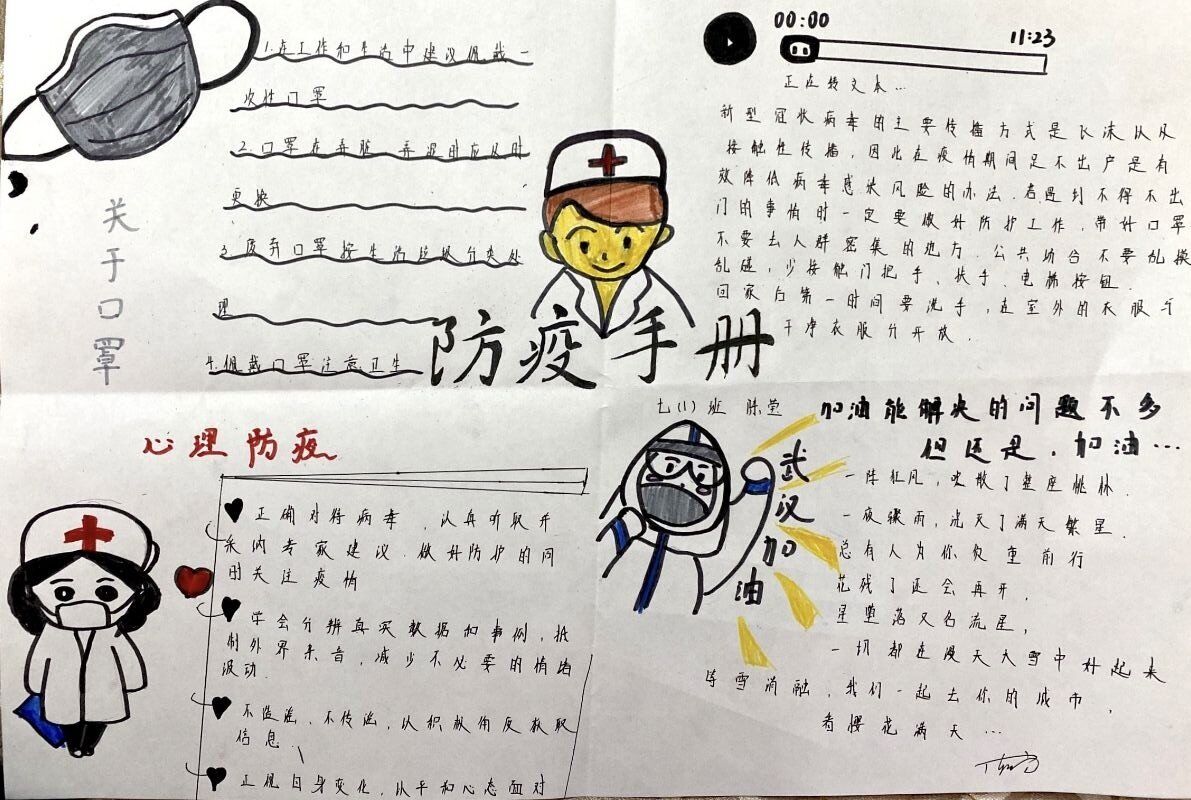 关于口罩
1.在工作和生活中建议佩戴一
次性口罩
2.口罩在弄脏、弄湿时应及时
更换
3.废弃口罩按生活垃圾分类处
理
4.佩戴口罩注意卫生
防疫手册
00:00
11:23
正在转文本…
新型冠状病毒的主要传播方式是飞沫以及
接触性传播，因此在疫情期间足不出户是有
效降低病毒感染风险的办法.若遇到不得不出
门的事情时一定要做好防护工作，带好口罩
不要去人群密集的地方.公共场合不要乱摸
乱碰，少接触门把手、扶手、电梯按钮.
回家后第一时间要洗手，在室外的衣服与
干净衣服分开放.
心理防疫
正确对待病毒，认真听取并
采纳专家建议.做好防护的同
时关注疫情
学会分辨真实数据和事例，抵
制外界杂音，减少不必要的情绪
波动.
不造谣、不传谣，以积极角度获取
信息.
正视自身变化，以平和心态面对
七(1)班
武汉加油
加油能解决的问题不多
但还是，加油…
一阵狂风，吹散了整座桃林.
一夜骤雨，洗灭了满天繁星.
总有人为你负重前行
花残了还会再开，
星坠落又名流星，
一切都在漫天大雪中好起来
等雪消融，我们一起去你的城市，
看樱花满天…